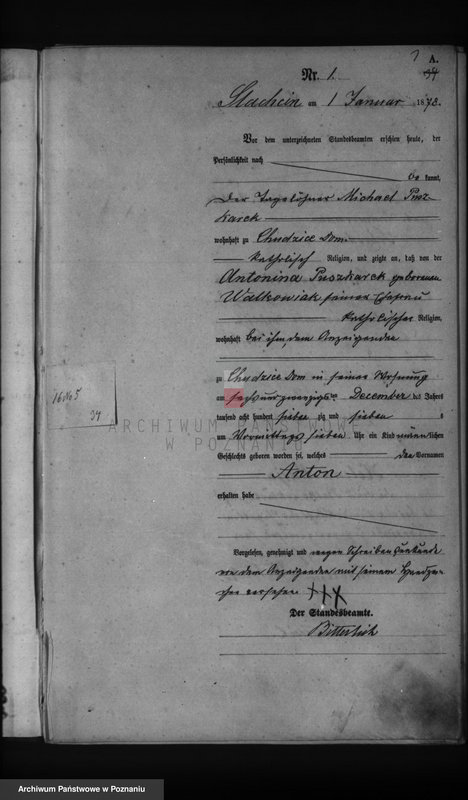 A.
34
Nr. 1.
am 1 Januar 1878.
Vor dem unterzeichneten Standesbeamten erschien heute, der
Persönlichkeit nach
be kannt,
Der Tagelöhner Michael Pusz
karek
wohnhaft zu Chudzice Dom.
katholisch Religion, und zeigte an, daß von der
Antonina Puszkarek geborenen
Walkowiak seiner Ehefrau
katholischer Religion,
wohnhaft bei ihm, dem Anzeigenden
zu Chudzice Dom in seiner Wohnung
am sechsundzwanzigsten December des Jahres
tausend acht hundert sieben zig und sieben
um Vormittags sieben Uhr ein Kind männlichen
Geschlechts geboren worden sei, welches den Vornamen
Anton
erhalten habe
16 No 5
34
ARCHIWUM PAŃSTWOWE
W POZNANIU
Vorgelesen, genehmigt und wegen Schreibensunkunde
von dem Anzeigenden mit seinem Handzei-
chen versehen. +++
Der Standesbeamte.
Bitterlich
Archiwum Państwowe w Poznaniu